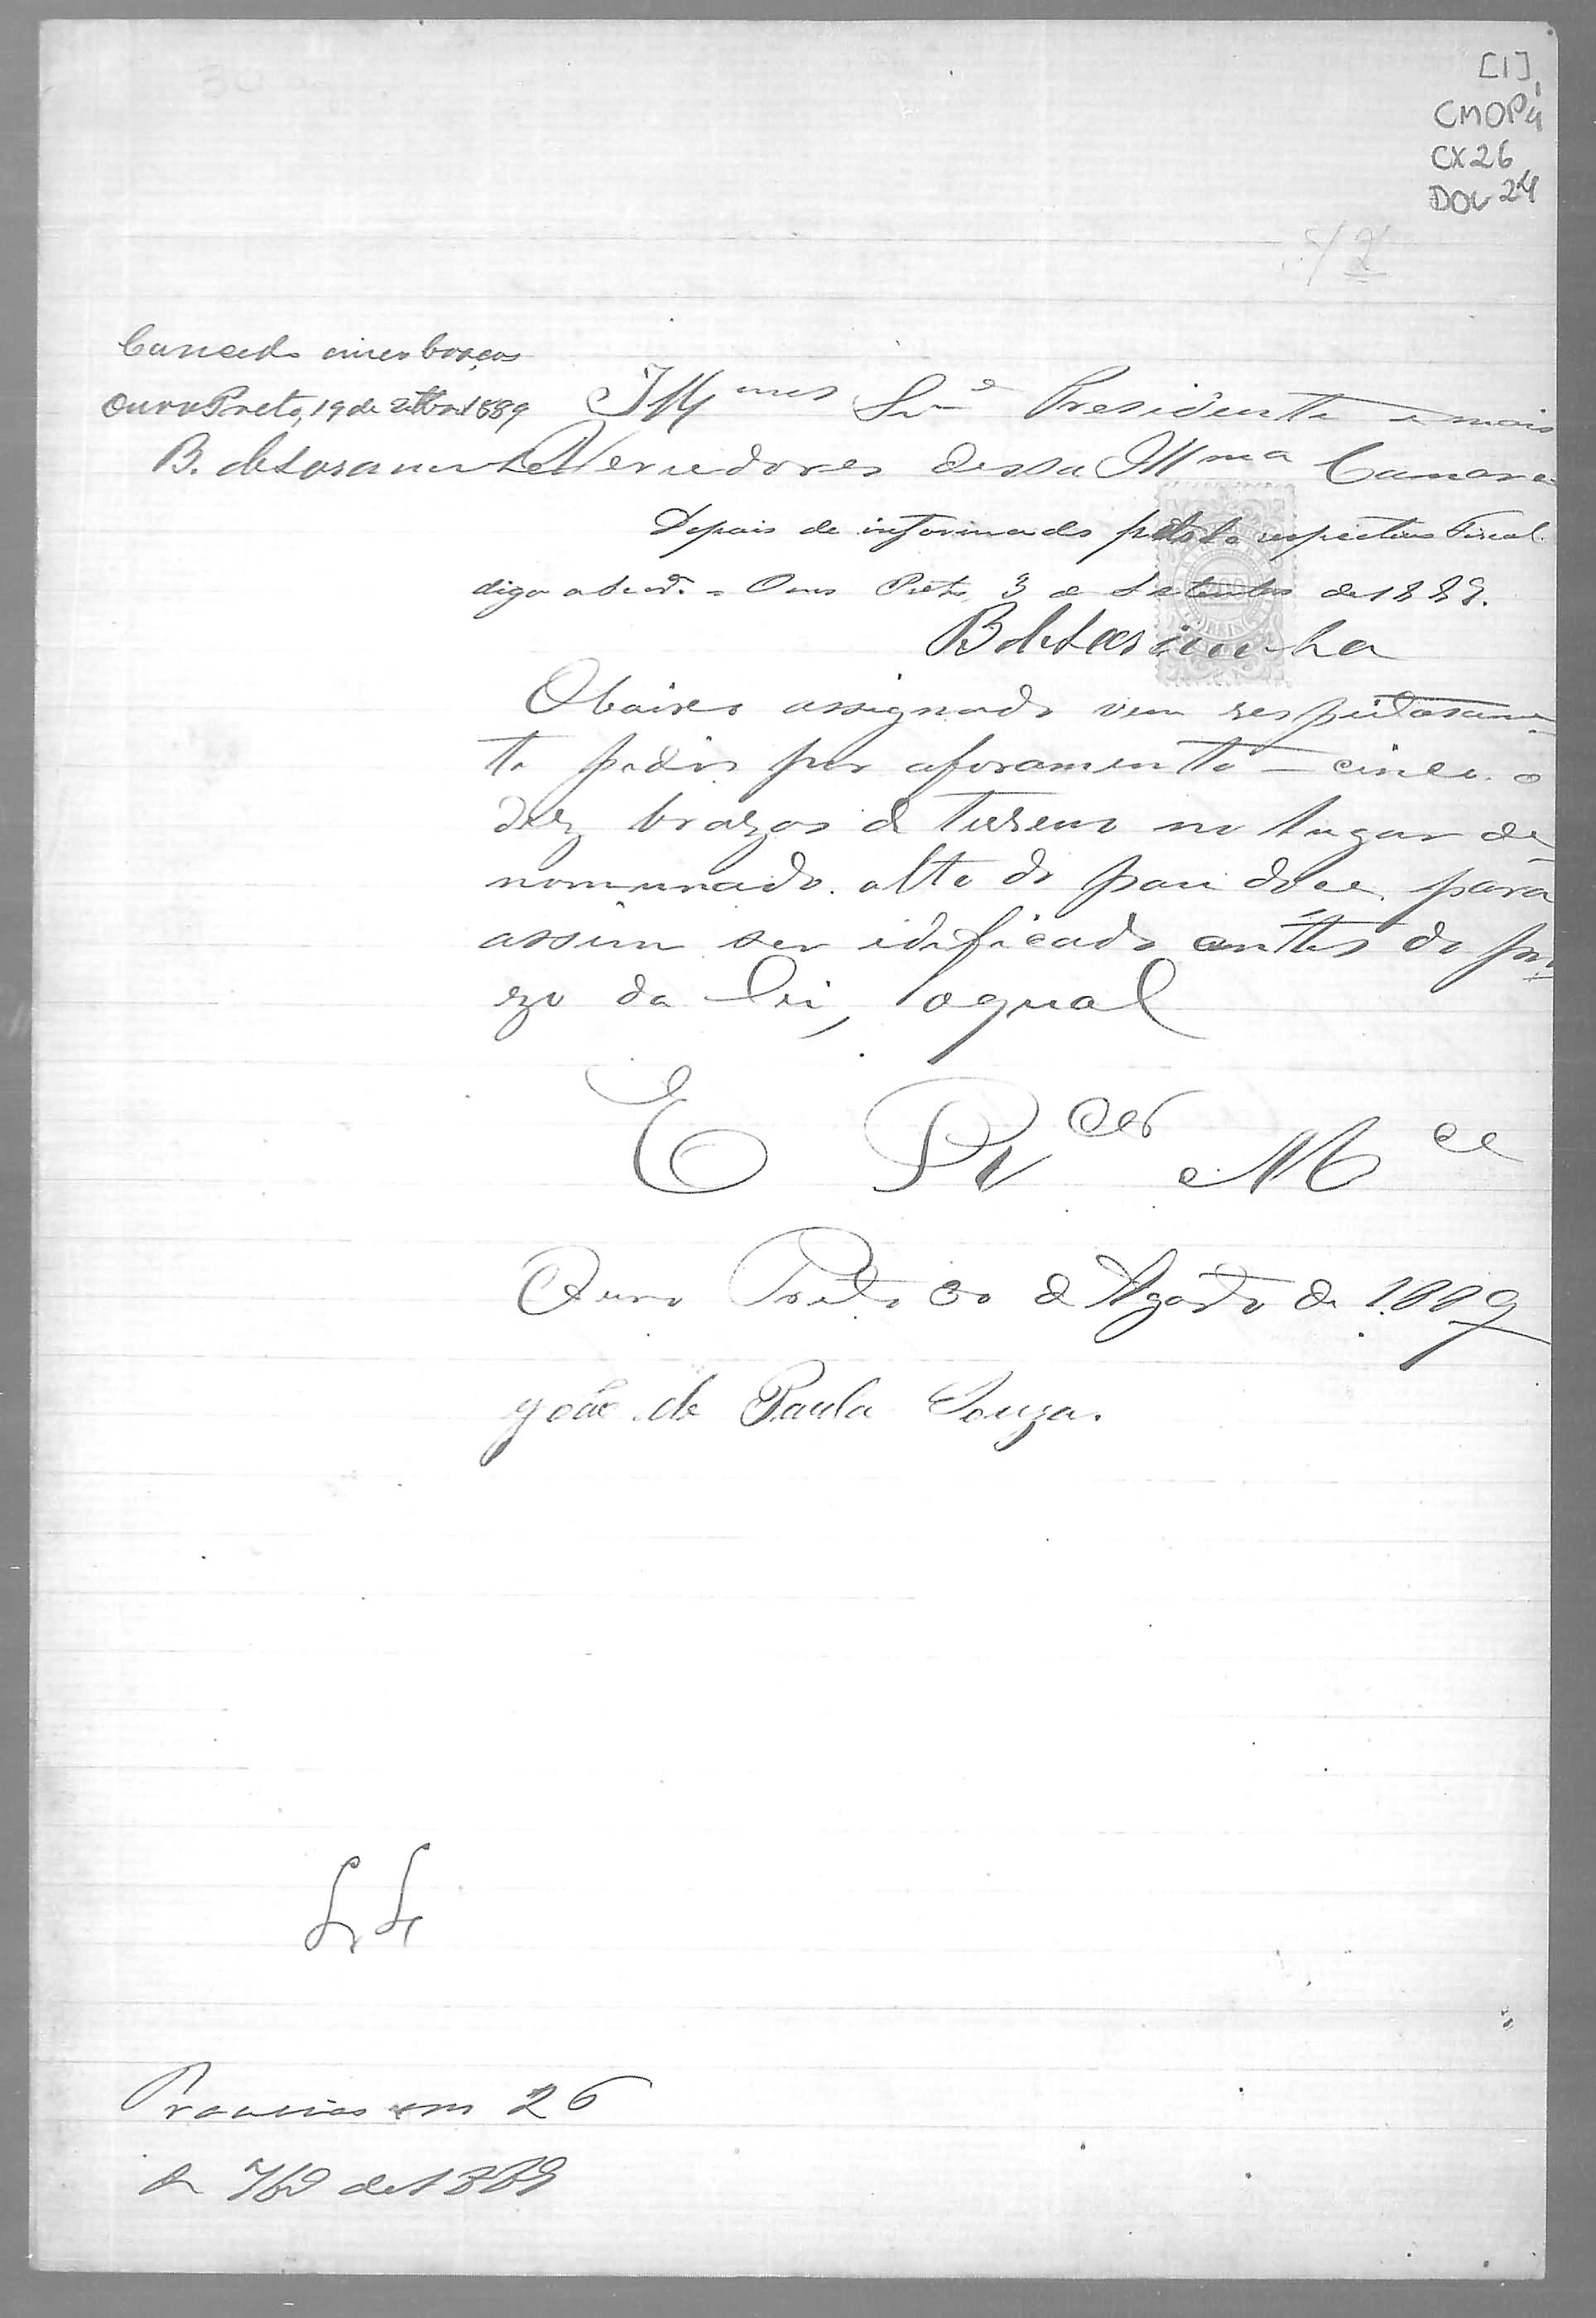 [1]
CMOP
CX 26
DOC 24
Concedo cinco braças
Ouro Preto, 19 de 7bro 1889
B. de Saramenha
Illmos Snr Presidente e mais
Vereadores dessa Illma Camara
Depois de informado pelo respectivo Fiscal
digo Ouro Preto, 3 de Setembro de 1889.
B de Saramenha
O baixo assignado vem respeitosamen-
te pedir por aforamento - cinco o
dez brazas de tereno no lugar de-
nominado alto do pau doce para
assim ser idificado antes do pra
zo da lei, o qual
E R Mce
Ouro Preto 30 de Agosto de 1889
João de Paula Souza.
em 26
de 7bro de 1889